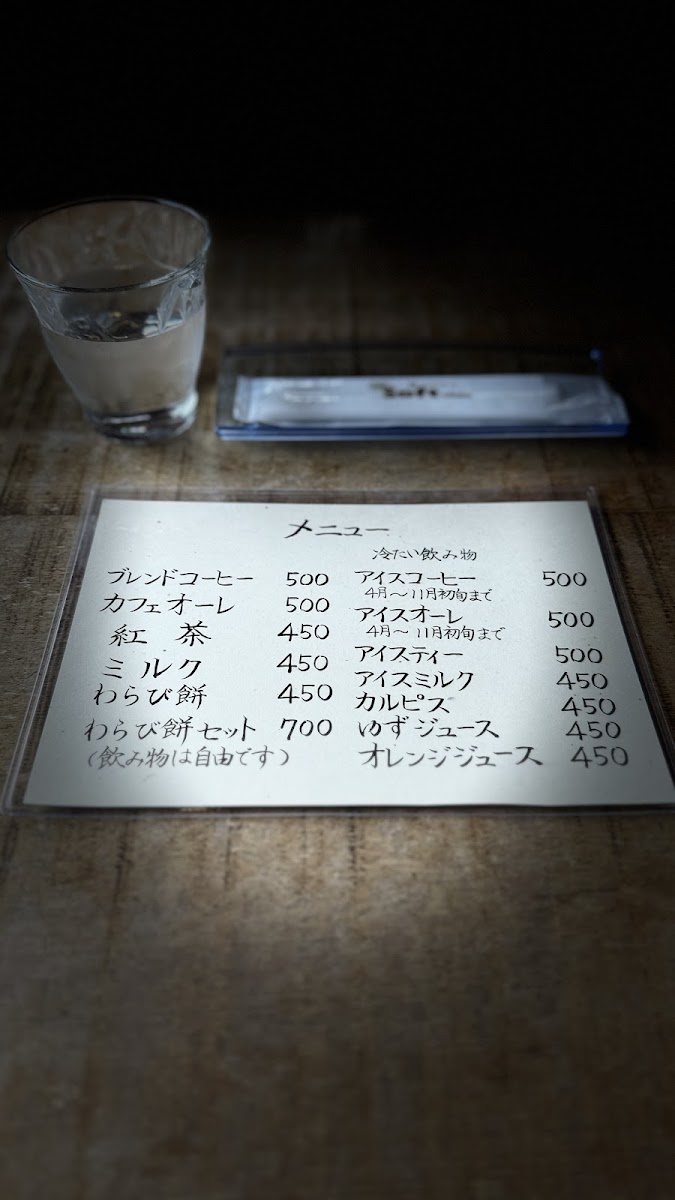 soft
メニュー
ブレンドコーヒー 500
カフェオーレ 500
紅茶 450
ミルク 450
わらび餅 450
わらび餅セット 700
(飲み物は自由です)
冷たい飲み物
アイスコーヒー 500
4月〜11月初旬まで
アイスオーレ 500
4月〜11月初旬まで
アイスティー 500
アイスミルク 450
カルピス 450
ゆずジュース 450
オレンジジュース 450